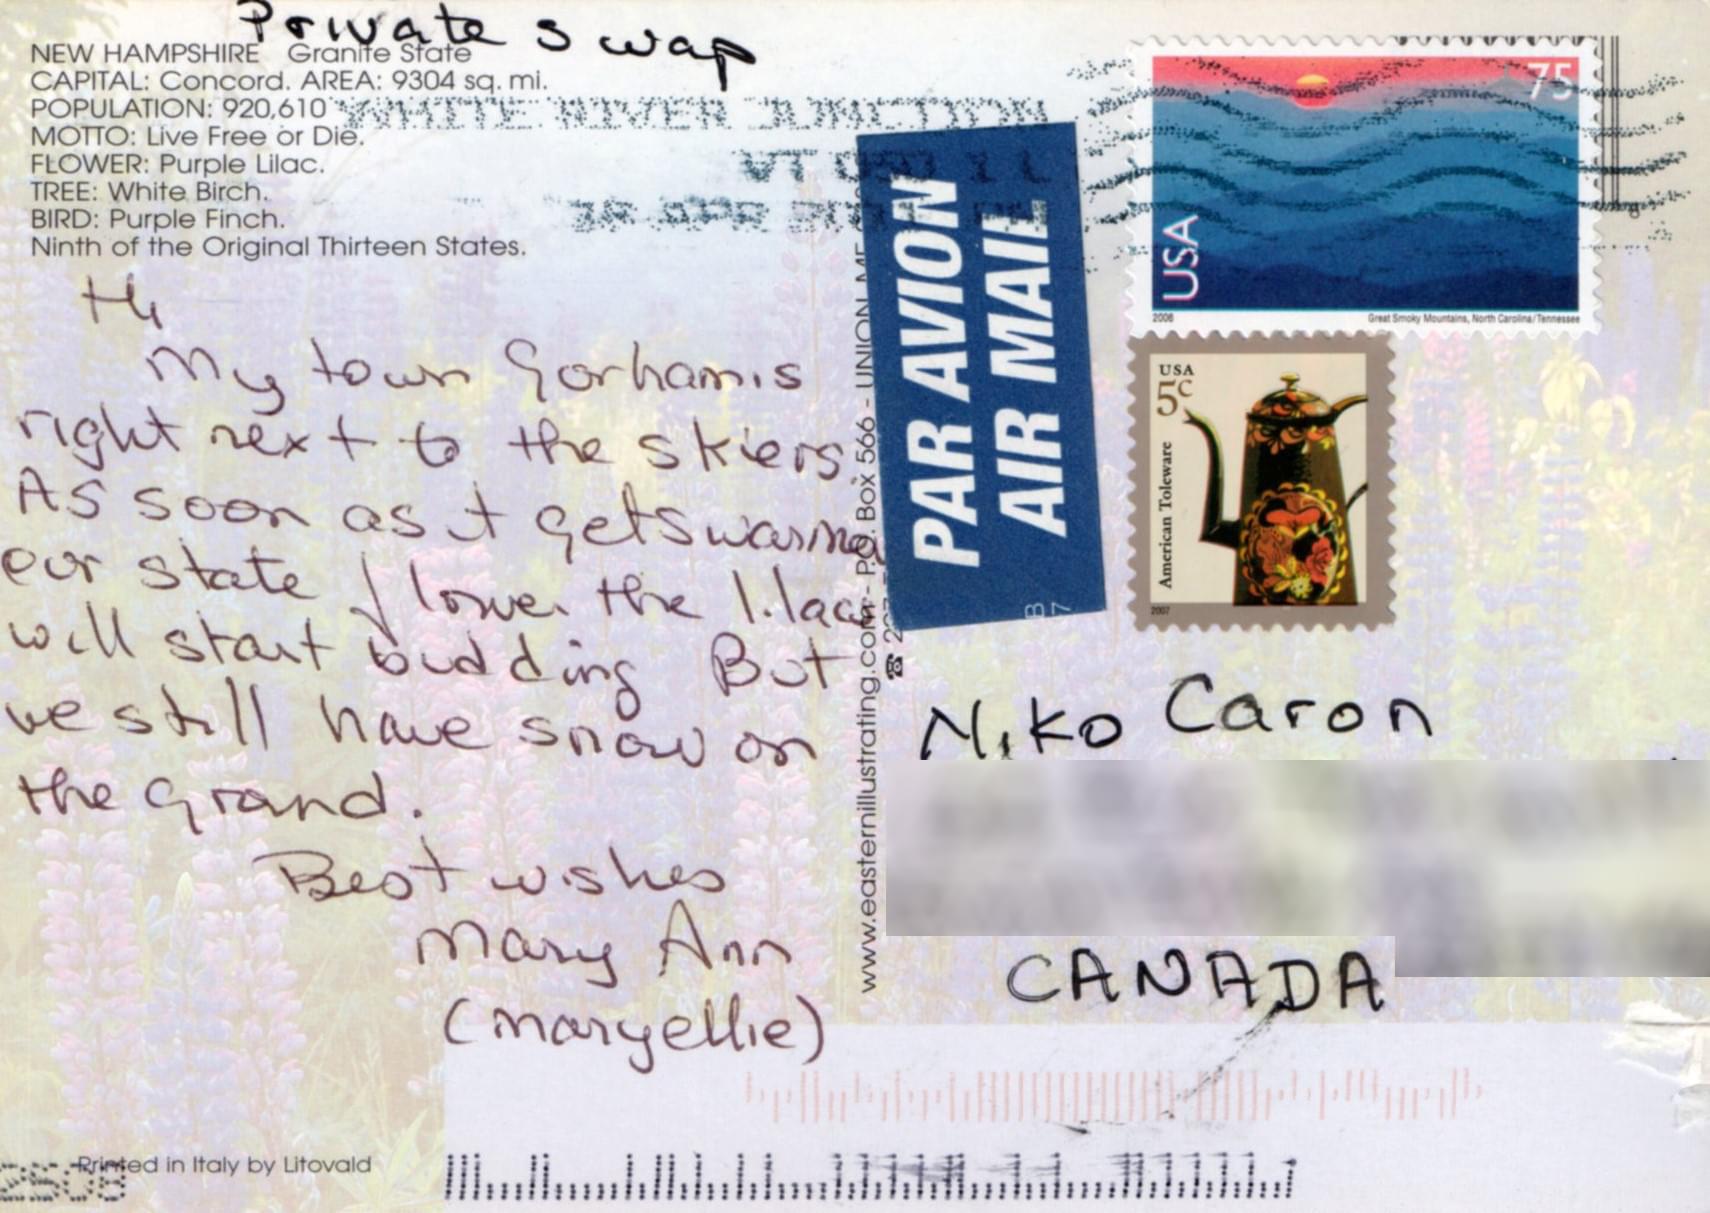 Private Swap
NEW HAMPSHIRE Granite State
CAPITAL: Concord. AREA: 9304 sq. mi.
POPULATION: 920,610
MOTTO: Live Free or Die.
FLOWER: Purple Lilac.
TREE: White Birch.
BIRD: Purple Finch.
Ninth of the Original Thirteen States.
WHITE RIVER JUNCTION
VT
APR
Hi
My town Gorham is
right next to the skiers.
As soon as it gets warm
our state flower the lilac
will start budding But
we still have snow on
the Grand.
Best wishes
Mary Ann
(maryellie)
Printed in Italy by Litovald
www.easternillustrating.com - P.O. Box 566 - UNION, ME
PAR AVION
AIR MAIL
75
USA
2006
Great Smoky Mountains, North Carolina/Tennessee
USA
5c
American Toleware
2007
Niko Caron
CANADA